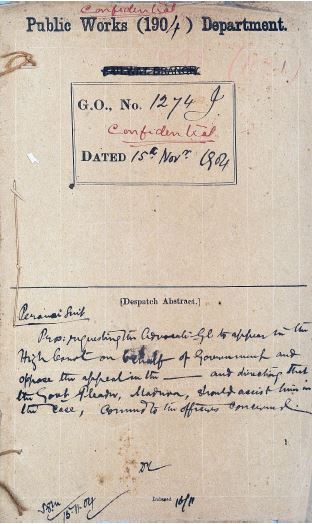 Confidential
Public Works (1904) Department.
G.O., No. 1274 I
Confidential
DATED 15th Novr 1904
[Despatch Abstract.]
Peranai Suit
Pro: requesting the Advocate-Gl to appear in the
High Court on behalf of Government and
oppose the appeal in the — and directing that
the Govt Pleader, Madura, should assist him in
the case, Commd to the officers concerned
15-11-04
Indexed 16/11